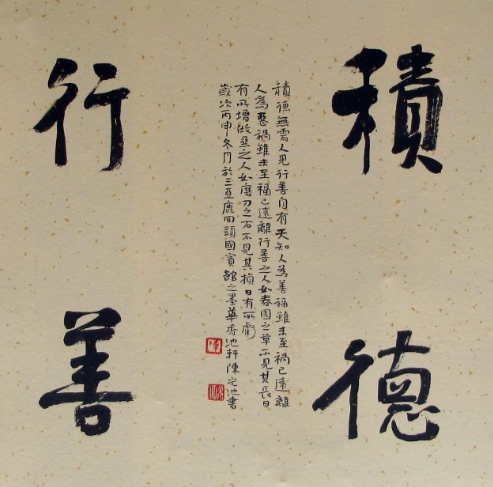 積德
積德無需人見行善自有天知人為善福雖未至禍已遠離
人為惡禍雖未至福已遠離行善之人如春園之草不見其長日
有所增做惡之人如磨刀之石不見其損日有所虧
歲次丙申冬月於三亞鹿回頭國賓館之墨華香池軒陳書
行善